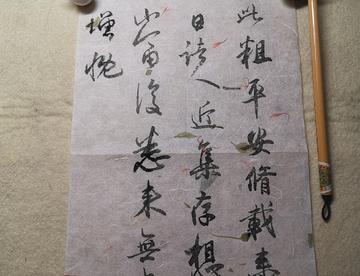 此粗平安脩載来
日諸人近集存想
當復悉来無
增慨